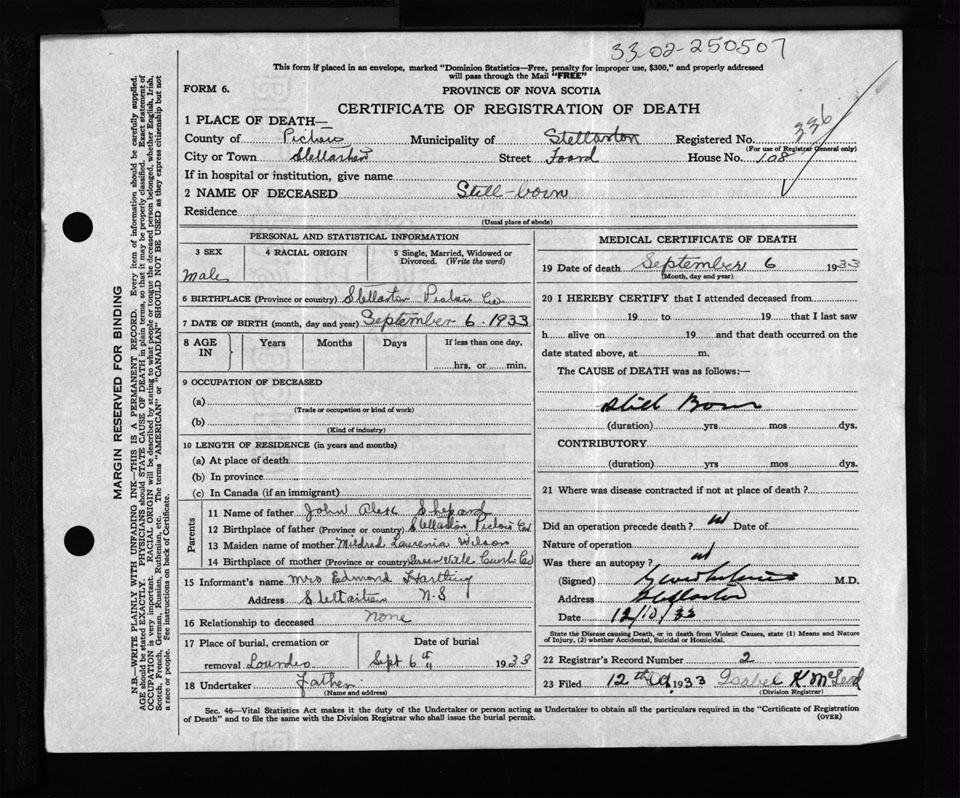 33-02-250507
This form if placed in an envelope, marked "Dominion Statistics—Free, penalty for improper use, $300," and properly addressed
will pass through the Mail "FREE"
FORM 6.
PROVINCE OF NOVA SCOTIA
CERTIFICATE OF REGISTRATION OF DEATH
1 PLACE OF DEATH—
County of Pictou Municipality of Stellarton Registered No. 336
(For use of Registrar General only)
City or Town Stellarton Street Foord House No. 108
If in hospital or institution, give name
2 NAME OF DECEASED Still-born
Residence
(Usual place of abode)
PERSONAL AND STATISTICAL INFORMATION
3 SEX 4 RACIAL ORIGIN 5 Single, Married, Widowed or Divorced. (Write the word)
Male
6 BIRTHPLACE (Province or country) Stellarton Pictou Co
7 DATE OF BIRTH (month, day and year) September 6. 1933
8 AGE IN Years Months Days If less than one day,
hrs. or min.
9 OCCUPATION OF DECEASED
(a)
(Trade or occupation or kind of work)
(b)
(Kind of industry)
10 LENGTH OF RESIDENCE (in years and months)
(a) At place of death
(b) In province
(c) In Canada (if an immigrant)
Parents
11 Name of father John Alex Shepard
12 Birthplace of father (Province or country) Stellarton Pictou Co
13 Maiden name of mother Mildred Laurenia Wilson
14 Birthplace of mother (Province or country) Greenville Cumb Co
15 Informant's name Mrs Edmond Hartling
Address Stellarton N-S
16 Relationship to deceased None
17 Place of burial, cremation or Date of burial
removal Lourdes Sept 6th 1933
18 Undertaker Father
(Name and address)
MEDICAL CERTIFICATE OF DEATH
19 Date of death September 6 1933
(Month, day and year)
20 I HEREBY CERTIFY that I attended deceased from
19 to 19 that I last saw
h alive on 19 and that death occurred on the
date stated above, at m.
The CAUSE of DEATH was as follows:—
Still Born
(duration) yrs mos dys.
CONTRIBUTORY
(duration) yrs mos dys.
21 Where was disease contracted if not at place of death?
Did an operation precede death? no Date of
Nature of operation
Was there an autopsy? no
(Signed) M.D.
Address Stellarton
Date 12/10/33
State the Disease causing Death, or in death from Violent Causes, state (1) Means and Nature
of Injury, (2) whether Accidental, Suicidal or Homicidal.
22 Registrar's Record Number 2
23 Filed 12th Oct 1933 Isabel K McLeod
(Division Registrar)
Sec. 46—Vital Statistics Act makes it the duty of the Undertaker or person acting as Undertaker to obtain all the particulars required in the "Certificate of Registration
of Death" and to file the same with the Division Registrar who shall issue the burial permit.
(OVER)
MARGIN RESERVED FOR BINDING
N.B.—WRITE PLAINLY WITH UNFADING INK—THIS IS A PERMANENT RECORD. Every item of information should be carefully supplied.
AGE should be stated EXACTLY. PHYSICIANS should STATE CAUSE OF DEATH in plain terms, so that it may be properly classified. Exact statement of
OCCUPATION is very important. RACIAL ORIGIN will be described by stating to what people or tongue the deceased person belonged, whether English, Irish,
Scotch, French, German, Russian, Ruthenian, etc. The terms "AMERICAN" or "CANADIAN" SHOULD NOT BE USED as they express citizenship but not
a race or people. See instructions on back of Certificate.